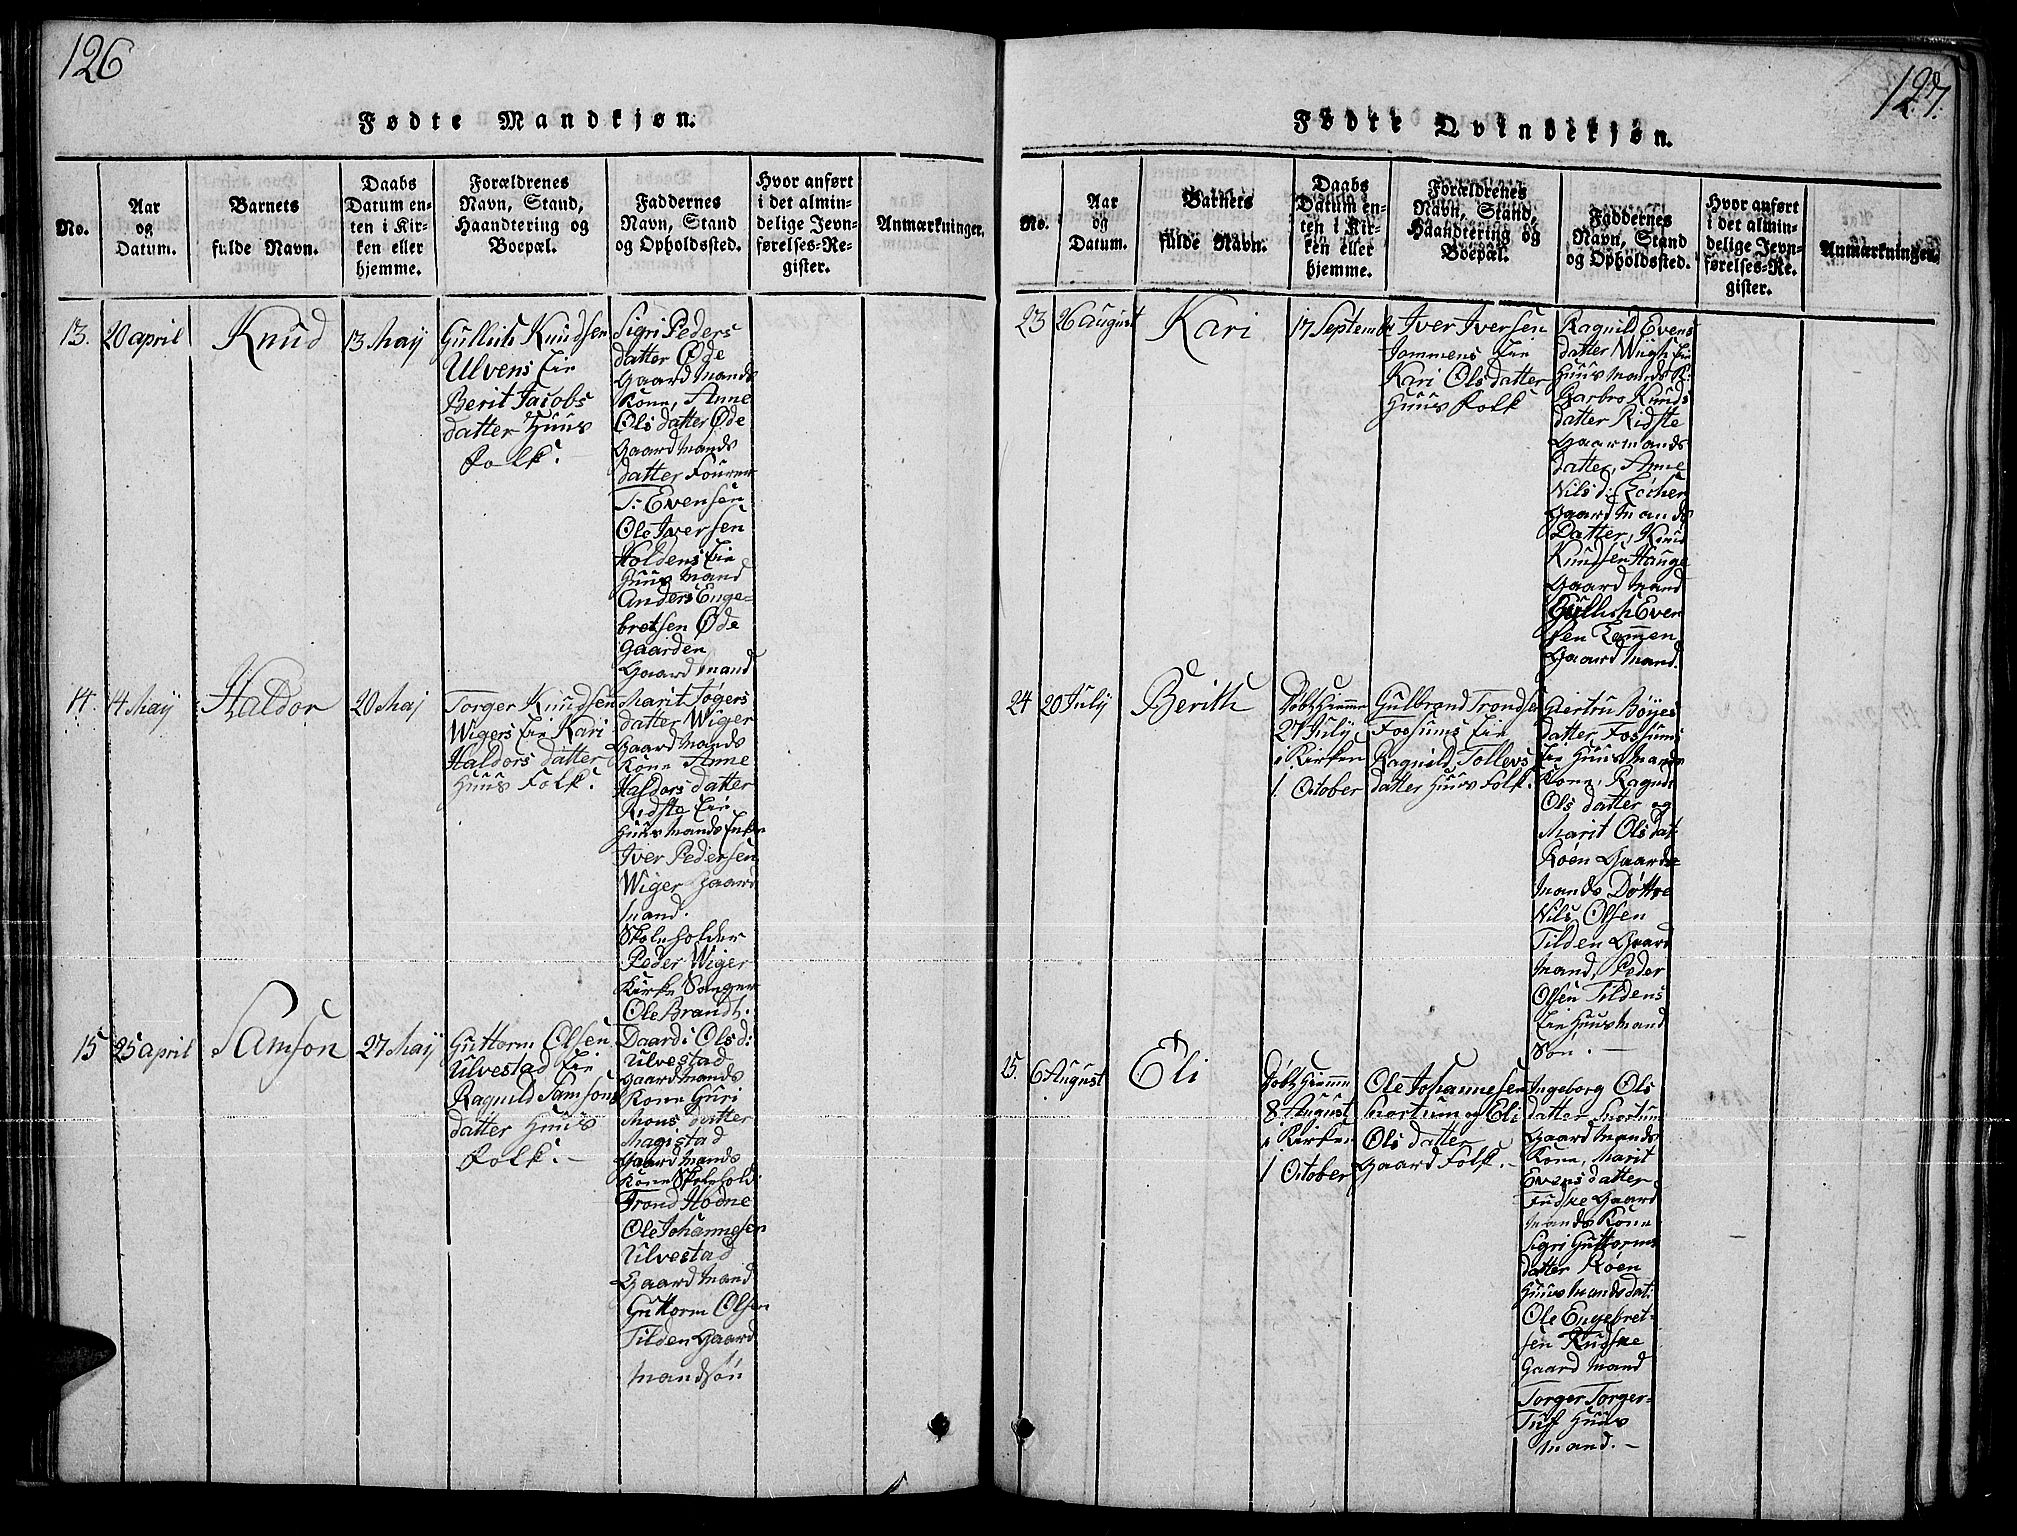 126
Fødte Mandkjøn.
No.
Aar
og
Datum.
Barnets
fulde Navn.
Daabs
Datum en-
ten i Kir-
ken eller
hjemme.
Forældrenes
Navn, Stand,
Haandtering og
Boepæl.
Faddernes
Navn, Stand
og Opholdssted.
Hvor anført
i det almin-
delige Jevn-
førelses-Re-
gister.
Anmærkninger.
13.
20 april
Knud
13 Maÿ
Gullich Knudsen
Ulvens Eie
Berit Jacobs
datter Huus
Folk.
Sigri Peders
datter Øde
Gaard Mands
Kone, Anne
Ols datter Øde
Gaard Mands
datter
T. Evensen
Ole Iversen
Holdens Eie
Huus Mand
Anders Enge-
bretsen Øde
Gaarden
Gaard Mand
14.
4 Maÿ
Haldor
20 Maj
Torger Knudsen
Wigers Eie Kari
Haldors datter
Huus Folk.
Marit
datter Wiger
Gaard Mands
Kone Anne
Haldors datter
Ridste Eie
Huus Mands Enke
Iver Pedersen
Wiger Gaard
Mand.
Skoleholder
Peder Wiger
Kirke Sanger
Ole Brandt.
15
25 april
Samson
27 Maÿ
Guttorm Olsen
Ulvestad Eie
Ragnild Samsons
datter Huus
Folk. —
Ols d:
Ulvestad
Gaard Mands
Kone Guri
Mons datter
Magistad
Gaard Mands
Kone Skolehold:
Trond Hodne
Ole Johannesen
Ulvestad
Gaard Mand
Guttorm Olsen
Tilden Gaard
Mandsön
127.
Fødte Qvindekjøn.
No.
Aar
og
Datum.
Barnets
fulde Navn.
Daabs
Datum en-
ten i Kir-
ken eller
hjemme.
Forældrenes
Navn, Stand,
Haandtering og
Boepæl.
Faddernes
Navn, Stand
og Opholdssted.
Hvor anført
i det almin-
delige Jevn-
førelses-Re-
gister.
Anmærkninger.
23
26 august
Kari
17 Septembr
Iver Iversen
Jammens Eie
Kari Olsdatter
Huus Folk
Ragnild Evens
datter Eie
Huus Mands K:
Barbro Knuds
datter Ridste
Gaarmands
datter, Anne
Nils d:
Gaard Mands
Datter, Knud
Knudsen Hauge
Gaard Mand
Gullich Even
sen
Gaard Mand.
24
20 Julÿ
Berith
Döbt Hiemme
27 Julÿ
i Kirken
1 October
Gulbrand Trondsen
Fossums Eie
Ragnild Tollevs
datter Huus Folk.
Giertru Böyes
datter Fossums
Eie Huus Mands
Kone, Ragnd:
Ols datter og
Marit Ols dat
Röen Gaard-
Mands Döttre
Nils Olsen
Tilden Gaard
Mand, Peder
Olsen Tildens
Eie Huus Mand
Sön. —
25.
6 August
Eli
Döbt Hiemme
8 August
i Kirken
1 October
Ole Johannesen
Snortum og Eli
Ols datter
Gaard Folk. —
Ingeborg Ols
datter Snortum
Gaard Mands
Kone, Marit
Evens datter
Gaard
Mands Kone
Sigri Guttorms
datter Röen
Huus Mands dat:
Ole Engebret-
sen
Gaard Mand
Torger Torger-
Tuf Huus
Mand. —